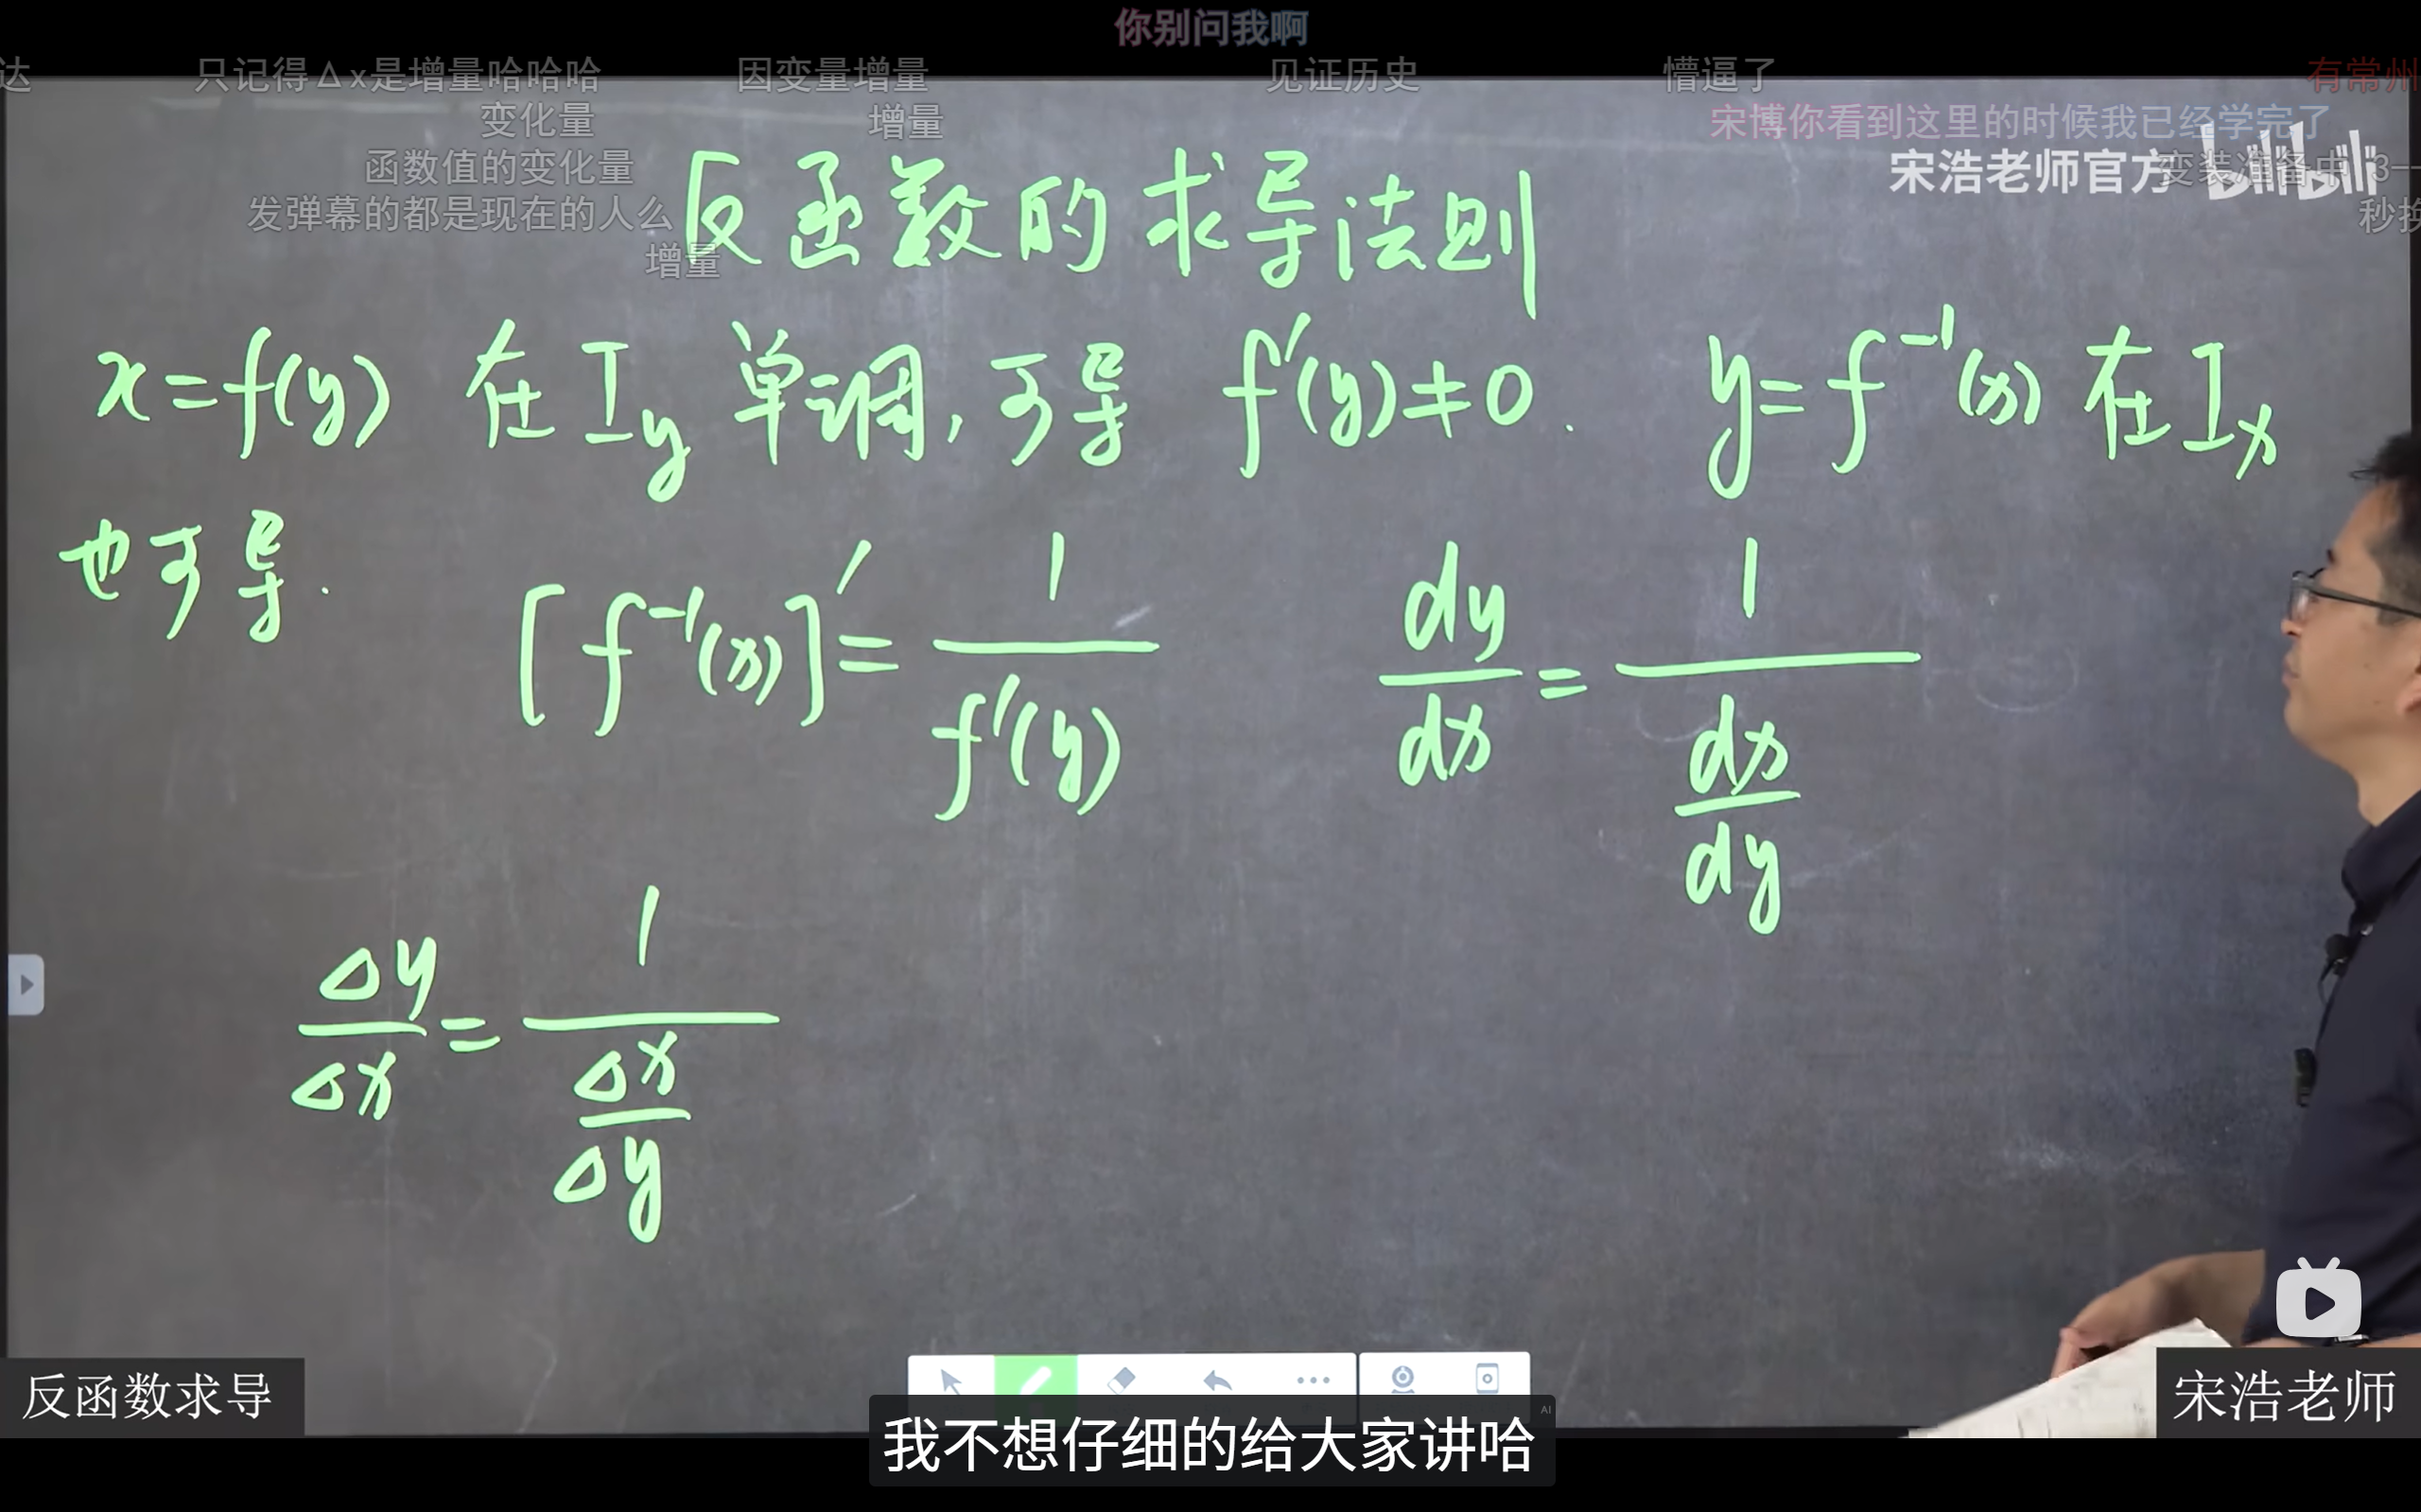 你别问我啊
达 只记得Δx是增量哈哈哈 因变量增量 见证历史 懵逼了 有常州
变化量 增量 宋博你看到这里的时候我已经学完了
函数值的变化量 宋浩老师官方 bilibili
发弹幕的都是现在的人么 秒换
增量
反函数的求导法则
x=f(y) 在 I_y 单调,可导 f'(y)≠0. y=f⁻¹(x) 在 I_x
也可导.
[f⁻¹(x)]'=1/f'(y) dy/dx=1/(dx/dy)
Δy/Δx=1/(Δx/Δy)
反函数求导
宋浩老师
AI
我不想仔细的给大家讲哈